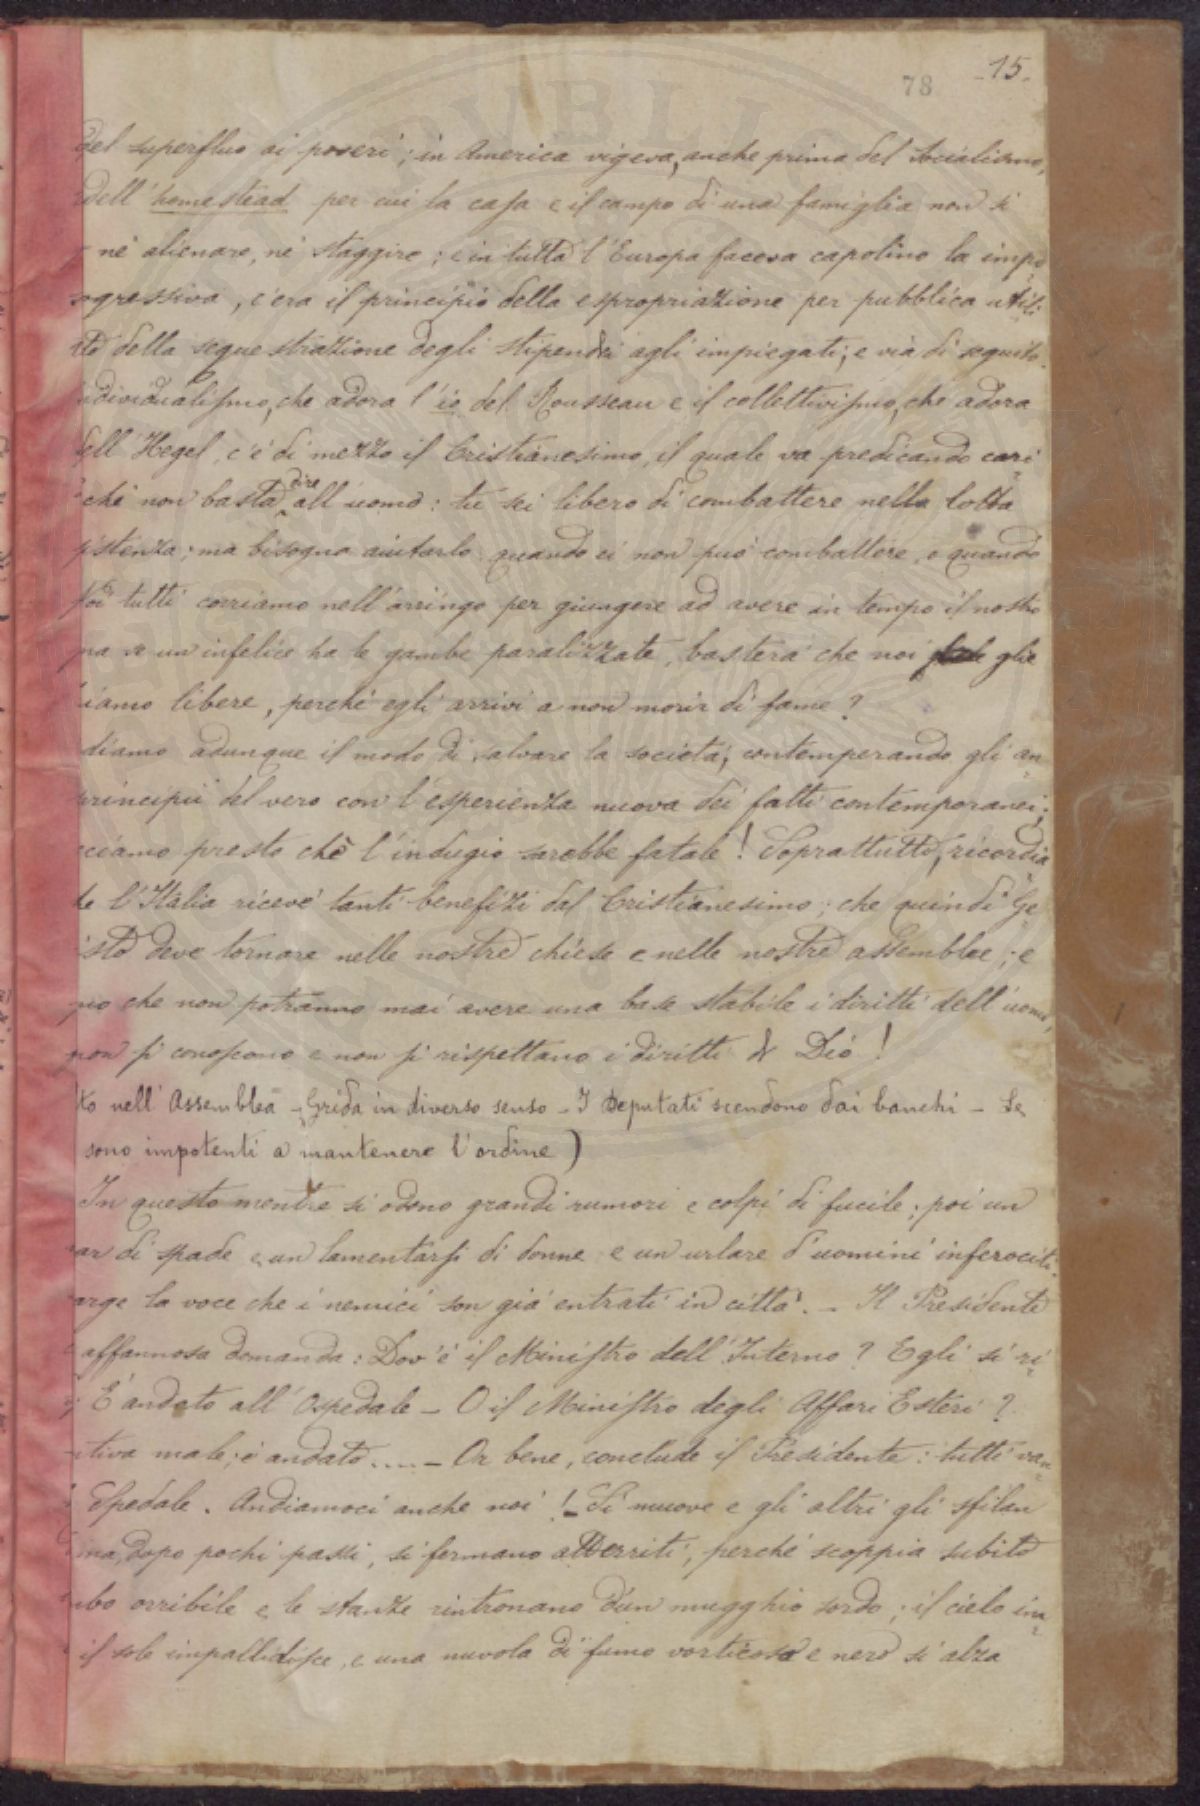 78 -15-
del superfluo ai poveri; in America vigeva, anche prima del Socialismo,
dell'homestead per cui la casa e il campo di una famiglia non si
nè alienare, nè staggire; e in tutta l'Europa faceva capolino la impo
ogressiva, c'era il principio della espropriazione per pubblica utili
della sequestrazione degli stipendi agli impiegati; e via di seguito.
ndividualismo, che adora l'io del Rousseau e il collettivismo, che adora
dell'Hegel, c'è di mezzo il Cristianesimo, il quale va predicando cari
chè non basta dire all'uomo: tu sei libero di combattere nella lotta
istenza: ma bisogna aiutarlo quando ei non può combattere, o quando
oi tutti corriamo nell'arringo per giungere ad avere in tempo il nostro
ma se un infelice ha le gambe paralizzate, basterà che noi glie
iamo libere, perchè egli arrivi a non morir di fame?
diamo adunque il modo di salvare la società, contemperando gli an
principii del vero con l'esperienza nuova dei fatti contemporanei;
cciamo presto chè l'indugio sarebbe fatale! Soprattutto, ricordia
he l'Italia ricevè tanti benefizi dal Cristianesimo; che quindi Ge
isto deve tornare nelle nostre chiese e nelle nostre assemblee; e
mo che non potranno mai avere una base stabile i diritti dell'uomo,
non si conoscono e non si rispettano i diritti di Dio!
to nell'Assemblea - Grida in diverso senso - I Deputati scendono dai banchi - Le
sono impotenti a mantenere l'ordine)
In questo mentre si odono grandi rumori e colpi di fucile; poi un
ar di spade e un lamentarsi di donne e un urlare d'uomini inferociti.
arge la voce che i nemici son già entrati in città. - Il Presidente
affannosa domanda: Dov'è il Ministro dell'Interno? Egli si ri
È andato all'Ospedale - O il Ministro degli Affari Esteri?
ntiva male; è andato..... - Or bene, conclude il Presidente: tutti van
Spedale. Andiamoci anche noi! - Si muove e gli altri gli sfilan
ma, dopo pochi passi, si fermano atterriti, perchè scoppia subito
mbo orribile e le stanze rintronano d'un mugghio sordo; il cielo im
il sole impallidisce, e una nuvola di fumo vorticoso e nero si alza